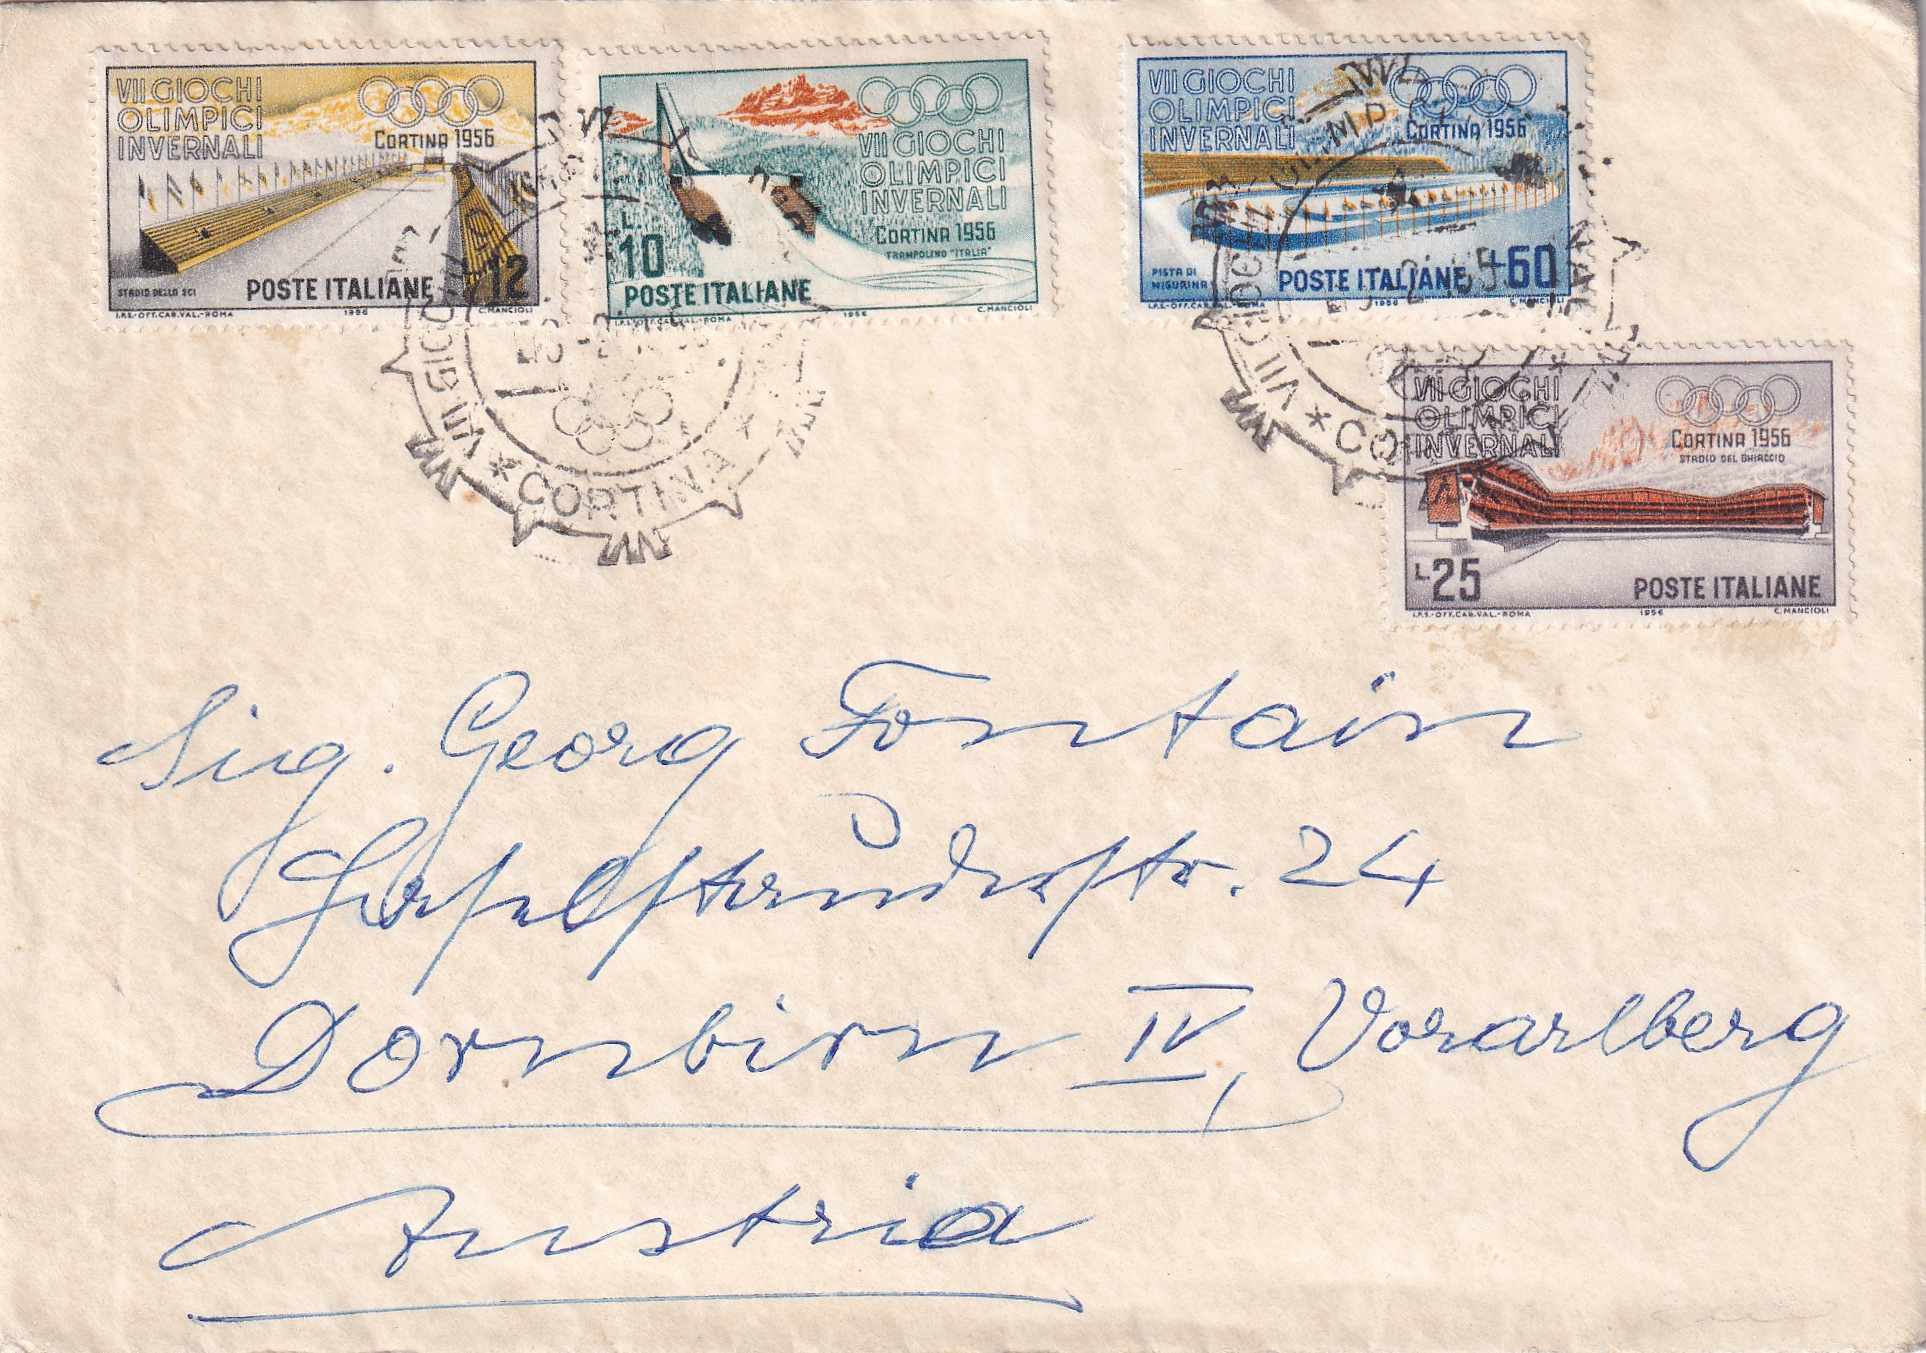 VII GIOCHI
OLIMPICI
INVERNALI
CORTINA 1956
STADIO DELLO SCI
POSTE ITALIANE
12
I.P.S.-OFF.CAR.VAL.-ROMA 1956 C.MANCIOLI
VII GIOCHI
OLIMPICI
INVERNALI
CORTINA 1956
TRAMPOLINO "ITALIA"
L
10
POSTE ITALIANE
I.P.S.-OFF.CAR.VAL.-ROMA 1956 C.MANCIOLI
VII GIOCHI
OLIMPICI
INVERNALI
CORTINA 1956
PISTA DI
MISURINA
POSTE ITALIANE
60
I.P.S.-OFF.CAR.VAL.-ROMA 1956 C.MANCIOLI
VII GIOCHI
OLIMPICI
INVERNALI
CORTINA 1956
STADIO DEL GHIACCIO
L.25
POSTE ITALIANE
I.P.S.-OFF.CAR.VAL.-ROMA 1956 C.MANCIOLI
VII GIOCHI
* CORTINA *
VII GIOCHI
Sig. Georg Fontain
24
Dornbirn IV, Vorarlberg
Austria